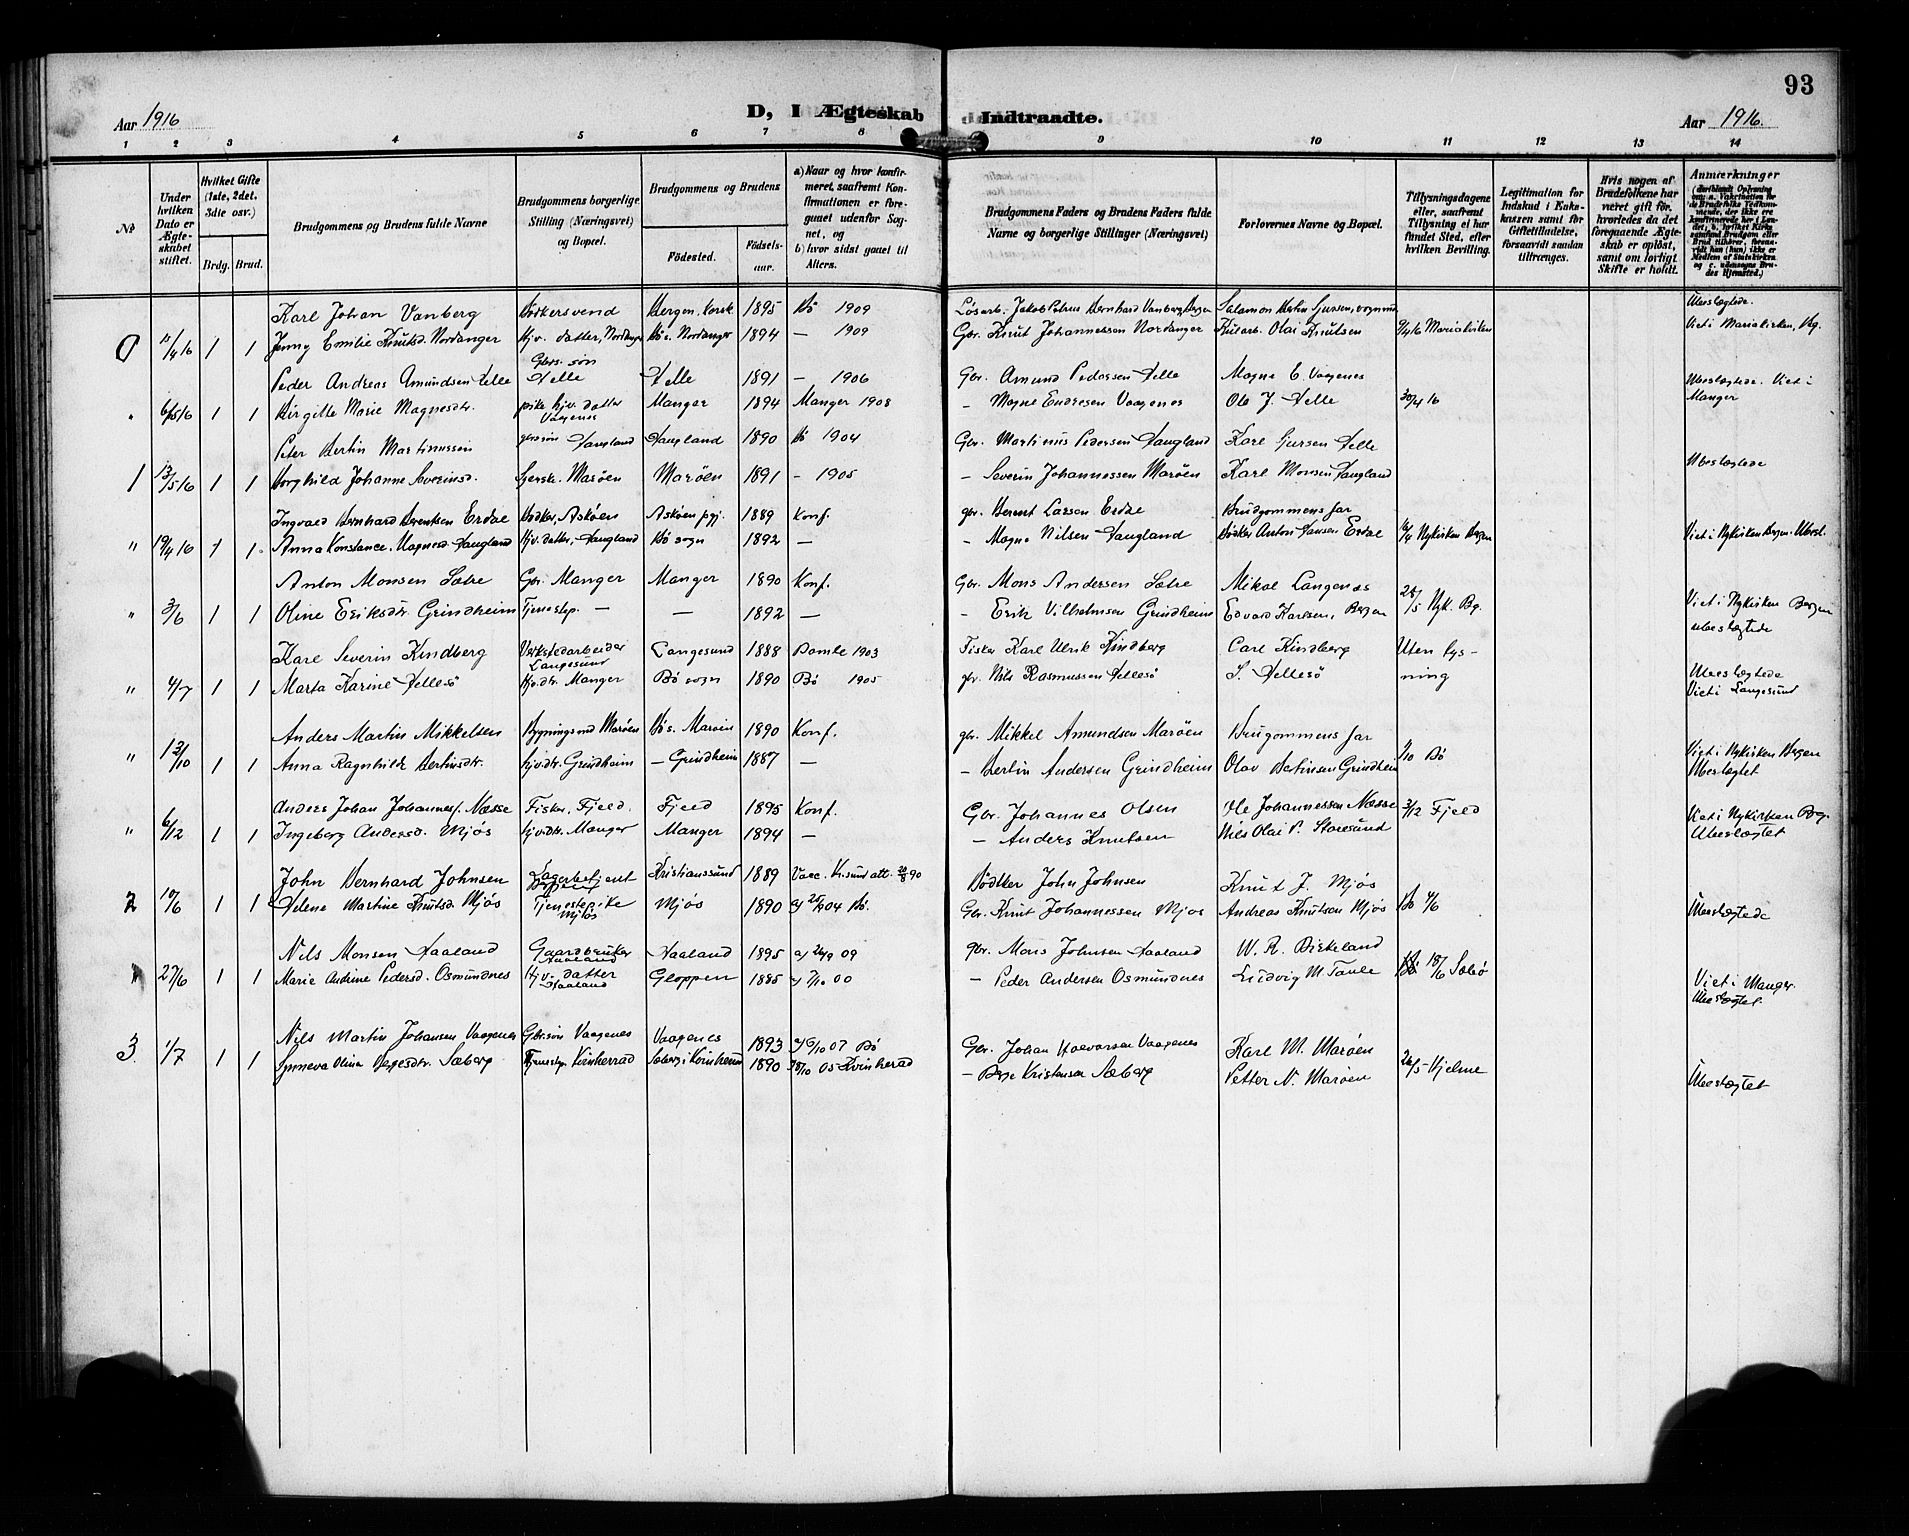 93
Aar 1916 D, I Ægteskab Indtraadte. Aar 1916.
1 2 3 4 5 6 7 8 9 10 11 12 13 14
No
Under hvilken Dato er Ægteskabet stiftet.
Hvilket Gifte (1ste, 2det, 3die osv.)
Brdg. Brud.
Brudgommens og Brudens fulde Navne
Brudgommens borgerlige Stilling (Næringsvei) og Bopæl.
Brudgommens og Brudens
Födested. Födsels-aar.
a) Naar og hvor konfirmeret, saafremt Konfirmationen er foregaaet udenfor Sognet, og
b) hvor sidst gaaet til Alters.
Brudgommens Faders og Brudens Faders fulde Navne og borgerlige Stillinger (Næringsvei)
Forlovernes Navne og Bopæl.
Tillysningsdagene eller, saafremt Tillysning ei har fundet Sted, efter hvilken Bevilling.
Legitimation for Indskud i Enkekassen samt for Giftetilladelse, forsaavidt saadan tiltrænges.
Hvis nogen af Brudefolkene har været gift för, hvorledes da det foregaaende Ægteskab er oplöst, samt om lovligt Skifte er holdt.
Anmærkninger
Karl Johan Vanberg Bödkersvend Bergen, Korsk 1895 Bö 1909 Lösarb. Jakob Petrus Bernhard Vanberg, Bergen Salamon Bertin Sjursen, vognmd Ubeslægtede.
0 15/4 16 1 1 Jenny Emilie Knutsd. Nordanger Hjv. datter, Nordanger Bö s. Nordanger 1894 — 1909 Gbr. Knut Johannessen Nordanger Kularb. Olai Knutsen 9/4 16 Mariakirken Viet i Mariakirken, Bg.
Peder Andreas Amundsen Helle Gbrs. søn Helle Helle 1891 — 1906 Gbr. Amund Pedersen Helle Magne E. Vaagenes Ubeslægtede. Viet i
" 6/5 16 1 1 Birgitte Marie Magnesdtr. pike hjv. datter Vaagenes Manger 1894 Manger 1908 — Magne Endresen Vaagenes Ole J. Helle 30/4 16 Manger
Peter Bertin Martinussen gbrs søn Haugland Haugland 1890 Bö 1904 Gbr. Martinus Pedersen Haugland Karl Sjursen Helle
1 13/5 16 1 1 Borghild Johanne Severinsd. Marøen Marøen 1891 — 1905 — Severin Johannessen Marøen Karl Monsen Haugland Ubeslægtede
Ingvald Bernhard Berentsen Erdal Bödker, Askøen Askøen pgj. 1889 Konf. gbr. Bernt Larsen Erdal Brudgommens far
" 19/4 16 1 1 Anna Konstance Magnesd. Haugland Hjv. datter, Haugland Bö sogn 1892 — — Magne Nilsen Haugland Bödker Anton Hansen Erdal 16/4 Nykirken Bergen Viet i Nykirken Bergen. Ubesl.
Anton Monsen Sætre Gbr. Manger Manger 1890 Konf. Gbr. Mons Andersen Sætre Mikal Langenes
" 3/6 1 1 Oline Eriksdtr. Grindheim Tjenestep. — — 1892 — — Erik Vilhelmsen Grindheim Edvard Karlsen, Bergen 28/5 Nyk. Bg. Viet i Nykirken Bergen
ubeslægtede
Karl Severin Kindberg Verkstedarbeider Langesund Langesund 1888 Bamle 1903 Fisker Karl Ulrik Kindberg Carl Kindberg Uten lys-
" 4/7 1 1 Marta Karine Hellesö Hjv. dtr. Manger Bö sogn 1890 Bö 1905 gbr. Nils Rasmussen Hellesö S. Hellesö ning Ubeslægtede
Viet i Langesund
Anders Martin Mikkelsen Bygningsmd Marøen Bö s. Marøen 1890 Konf. gbr. Mikkel Amundsen Marøen Brugommens far
" 12/10 1 1 Anna Ragnhilde Bertinsdtr. hjv. dtr. Grindheim — Grindheim 1887 — — Bertin Andersen Grindheim Olav Bertinsen Grindheim 1/10 Bö Viet i Nykirken Bergen
Ubeslægtet
Anders Johan Johannesf. Næsse Fisker, Fjeld. Fjeld 1895 Konf. Gbr. Johannes Olsen Ole Johannessen Næsse 3/12 Fjeld Viet i Nykirken Bg.
" 6/12 1 1 Ingeborg Andersd. Mjøs hjv. dtr. Manger Manger 1894 — — Anders Knutsen Nils Olai P. Storesund Ubeslægtet
John Bernhard Johnsen Lagerbetjent Kristianssund 1889 Vacc. Kr.sund att. 20/8 90 Bödtker John Johnsen Knut J. Mjøs
2 10/6 1 1 Helene Martine Knutsd. Mjøs Tjenestepike Mjøs Mjøs 1890 a) 25/9 04 Bö. Gbr. Knut Johannessen Mjøs Andreas Knutsen Mjøs Bö 4/6 Ubeslægtede
Nils Monsen Haaland Gaardbruker Haaland Haaland 1895 a) 26/9 09 gbr. Mons Johnsen Haaland W. R. Birkeland
" 27/6 1 1 Marie Andrine Pedersd. Osmundnes Hjv. datter Haaland Gloppen 1885 a) 7/10 00 — Peder Andersen Osmundnes Ludvig M. Taule 18/6 Sæbø Viet i Manger.
Ubeslægtet.
Nils Martin Johansen Vaagenes Gbr.søn Vaagenes Vaagenes 1893 a) 6/10 07 Bö Gbr. Johan Halvorsen Vaagenes Karl M. Marøen
3. 1/7 1 1 Synneva Olina Børgesdtr. Sæberg Tjenestep. Kvinherrad Sæberg i Kvinherrad 1890 05 Kvinherrad — Børge Kristensen Sæberg Petter N. Marøen 28/5 Hjelme Ubeslægtet